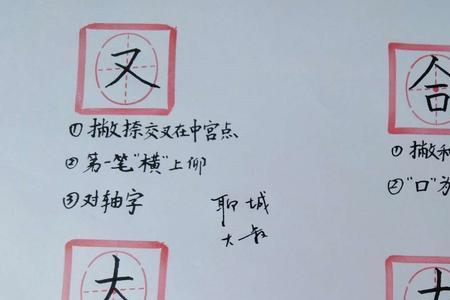 又
①撇捺交叉在中宫点
②第一笔"横"上仰
③对轴字
聊城
大
合
①撇和
②"口"为